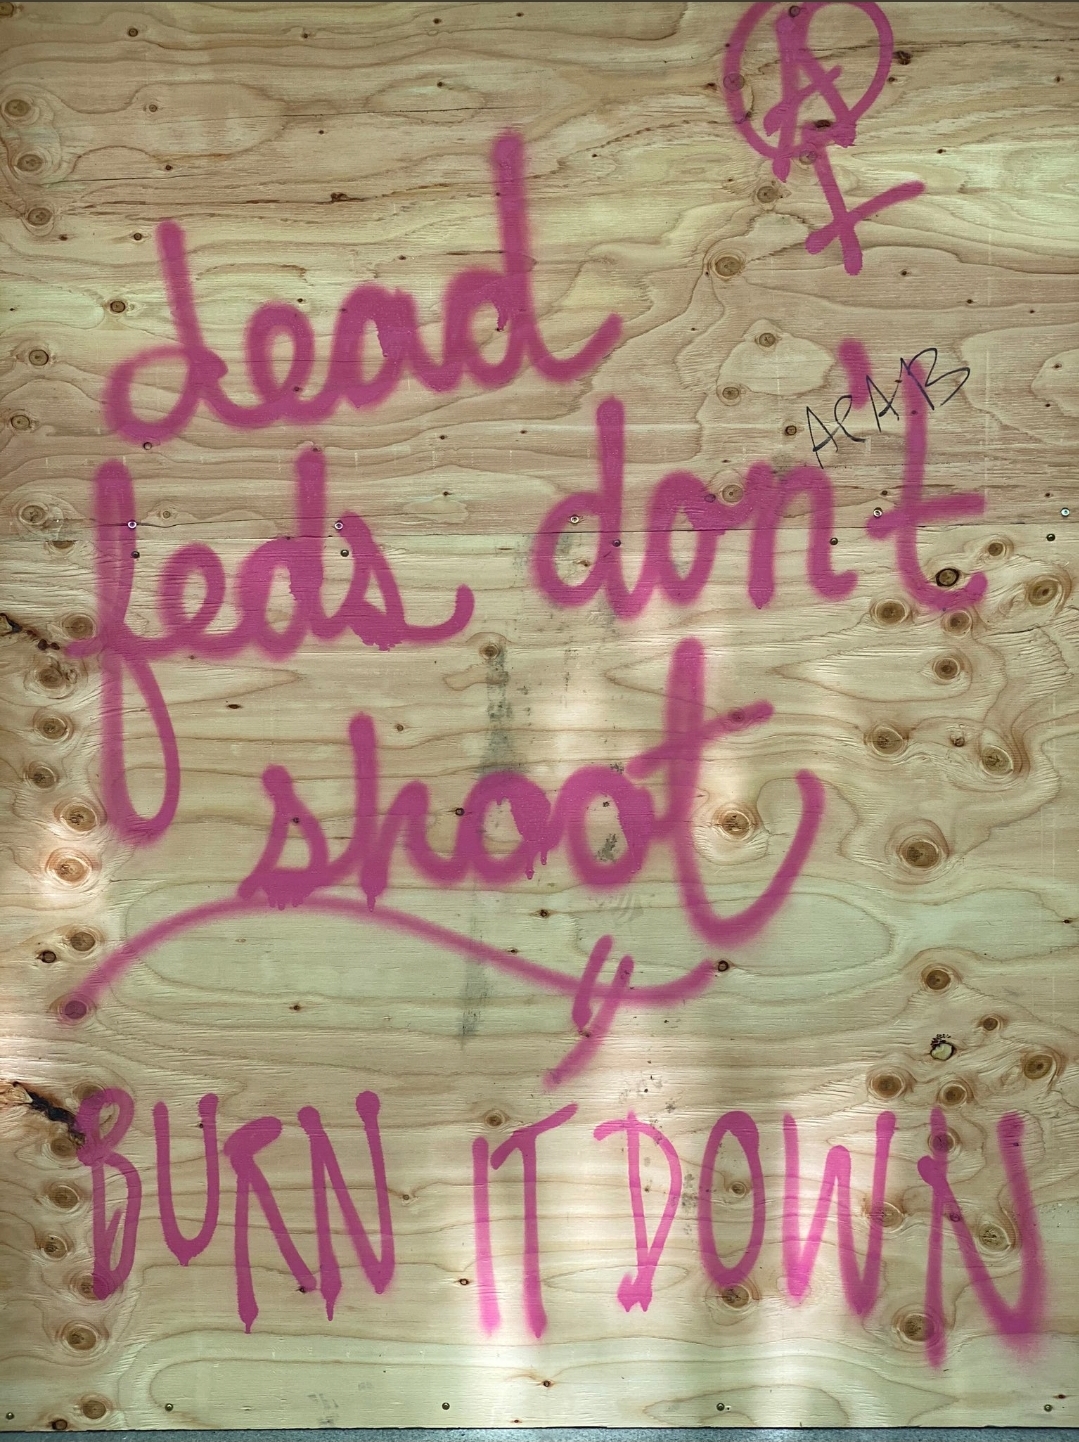 A
dead
ACAB
feds don't
shoot
BURN IT DOWN